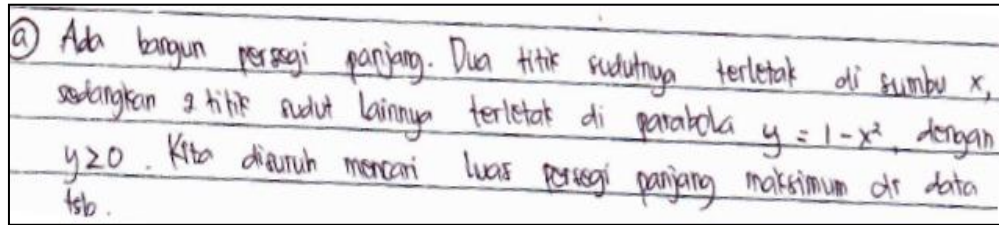 a) Ada bangun persegi panjang. Dua titik sudutnya terletak di sumbu x,
sedangkan 2 titik sudut lainnya terletak di parabola y = 1 - x², dengan
y ≥ 0. Kita disuruh mencari luas persegi panjang maksimum dr data
tsb.